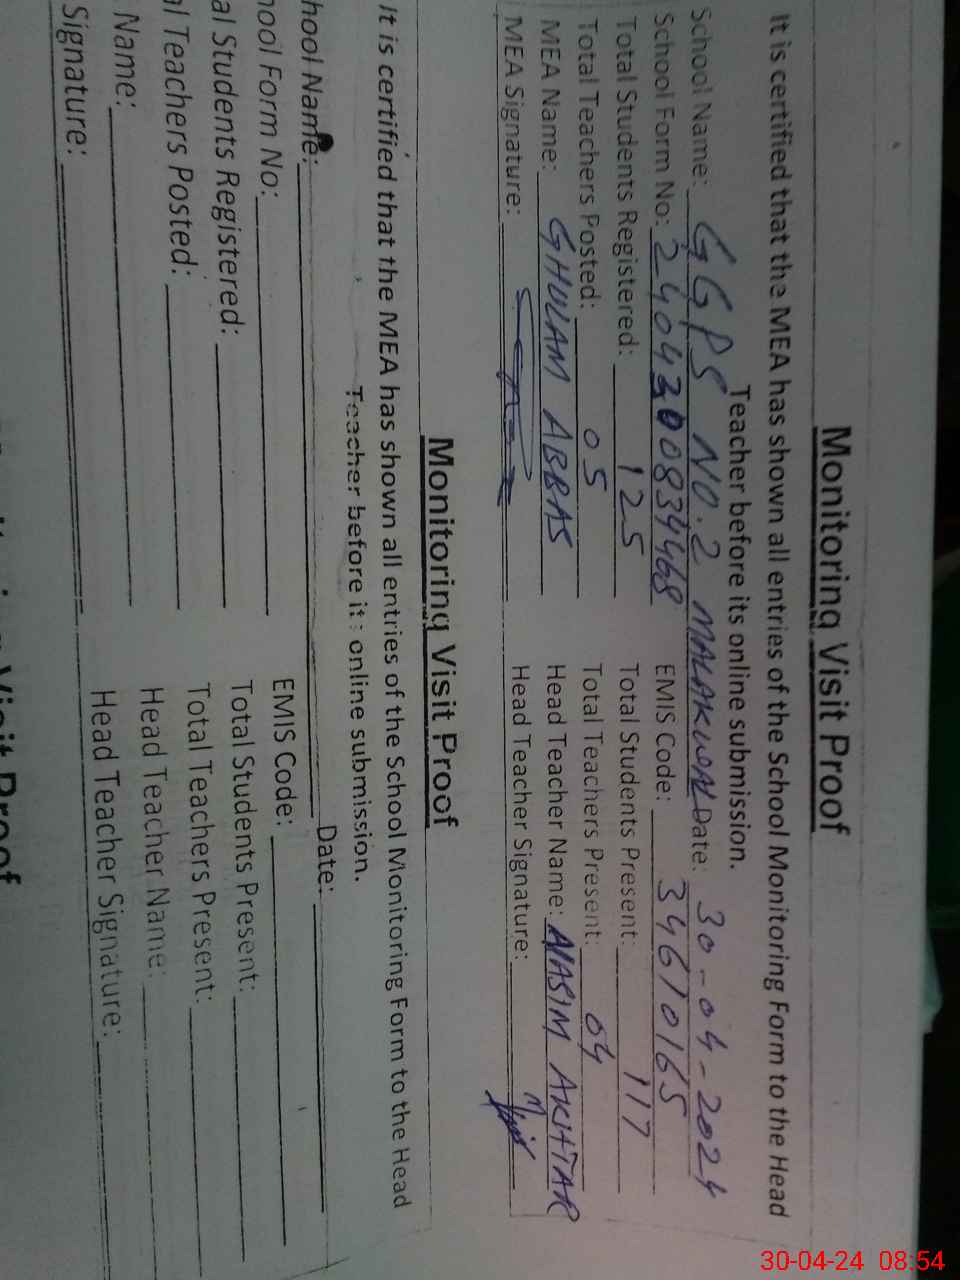 Monitoring Visit Proof
It is certified that the MEA has shown all entries of the School Monitoring Form to the Head
Teacher before its online submission.
School Name: GGPS NO.2 MALAKWAL Date: 30-04-2024
School Form No: 2404300834468 EMIS Code: 34610165
Total Students Registered: 125 Total Students Present: 117
Total Teachers Posted: 05 Total Teachers Present: 04
MEA Name: GHULAM ABBAS Head Teacher Name: NASIM AKHTAR
MEA Signature: Head Teacher Signature:
Monitoring Visit Proof
It is certified that the MEA has shown all entries of the School Monitoring Form to the Head
Teacher before it: online submission.
hool Name: Date:
hool Form No: EMIS Code:
al Students Registered: Total Students Present:
al Teachers Posted: Total Teachers Present:
Name: Head Teacher Name:
Signature: Head Teacher Signature:
Visit Proof
30-04-24 08:54